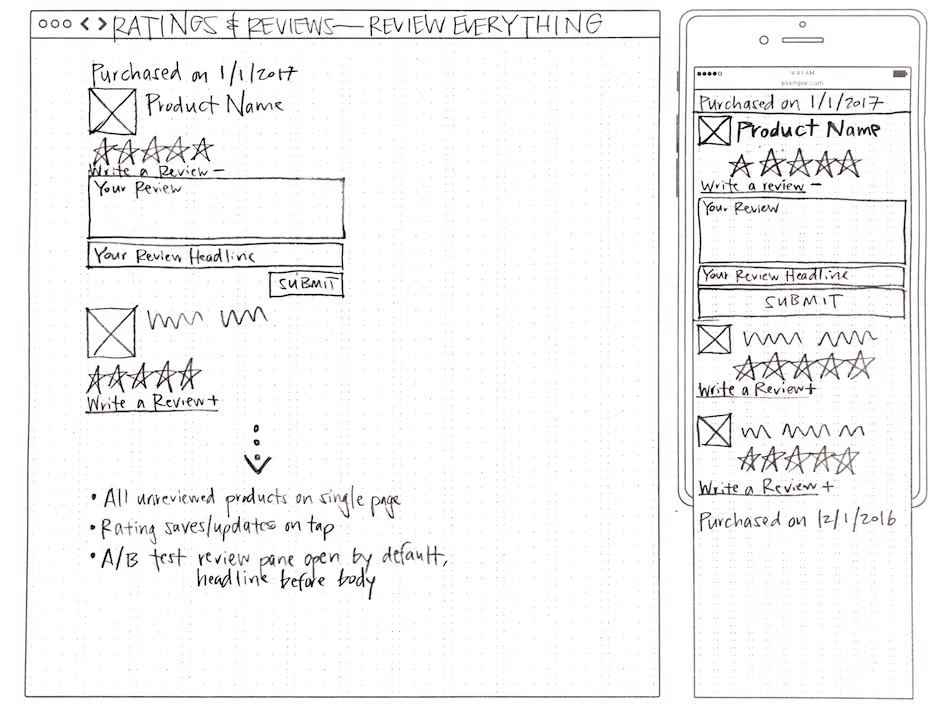 RATINGS & REVIEWS — REVIEW EVERYTHING
Purchased on 1/1/2017
Product Name
Write a Review –
Your Review
Your Review Headline
SUBMIT
Write a Review +
• All unreviewed products on single page
• Rating saves/updates on tap
• A/B test review pane open by default,
headline before body
9:41 AM
example.com
Purchased on 1/1/2017
Product Name
Write a review –
Your Review
Your Review Headline
SUBMIT
Write a Review +
Write a Review +
Purchased on 12/1/2016